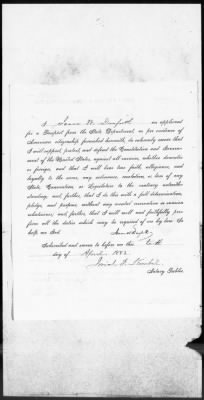 I, Isaac W. Danforth an applicant
for a Passport from the State Department, as per evidence of
American citizenship furnished herewith, do solemnly swear that
I will support, protect, and defend the Constitution and Govern-
ment of the United States, against all enemies, whether domestic
or foreign, and that I will bear true faith, allegiance, and
loyalty to the same, any ordinance, resolution, or law of any
State, Convention, or Legislature to the contrary notwith-
standing; and further, that I do this with a full determination,
pledge, and purpose, without any mental reservation or evasion
whatsoever; and further, that I will well and faithfully per-
form all the duties which may be required of me by law. So
help me God.
Subscribed and sworn to before me this
day of April 1882
Notary Public.